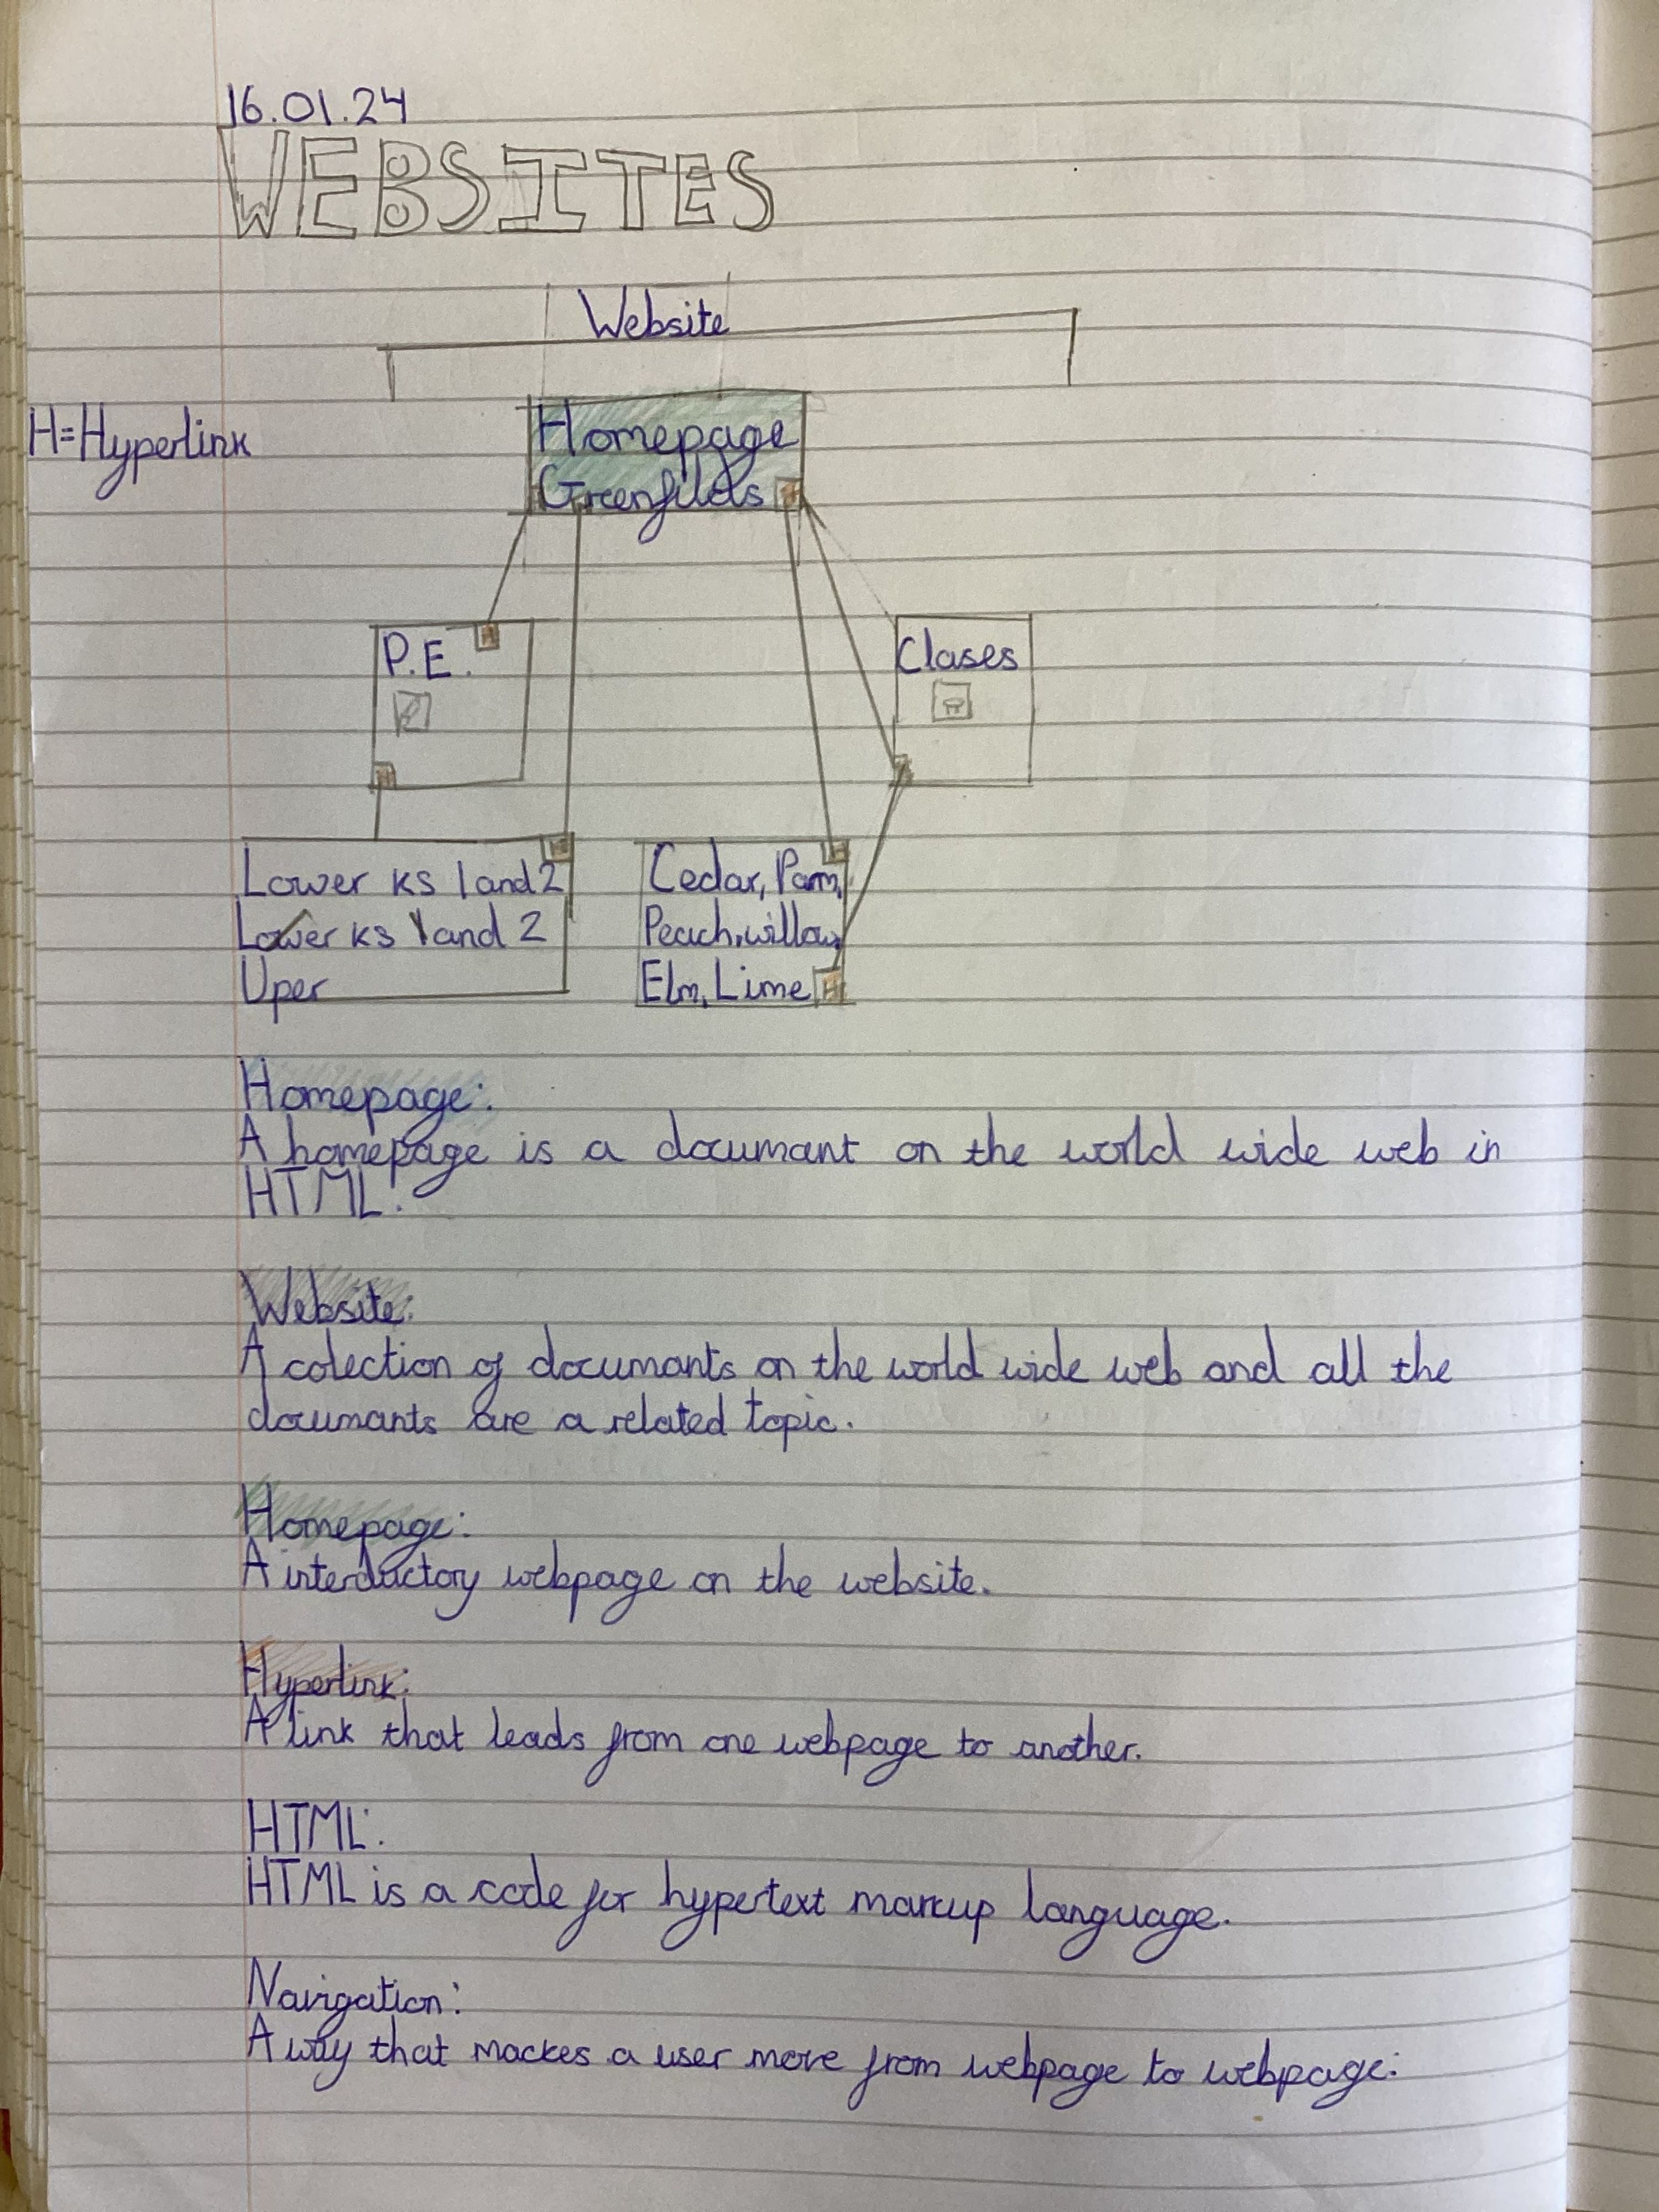 16.01.24
WEBSITES
Website
H=Hyperlink
Homepage
Greenfilds H
P.E. H
Clases
H
Lower ks 1 and 2 H
Lower ks 1 and 2
Uper
Cedar, Parm, H
Peach, willow,
Elm, Lime H
Homepage:
A homepage is a documant on the world wide web in
HTML.
Website:
A colection of documants on the world wide web and all the
documants are a related topic.
Homepage:
A interductory webpage on the website.
Hyperlink:
A link that leads from one webpage to another.
HTML:
HTML is a code for hypertext markup language.
Navigation:
A way that mackes a user move from webpage to webpage.